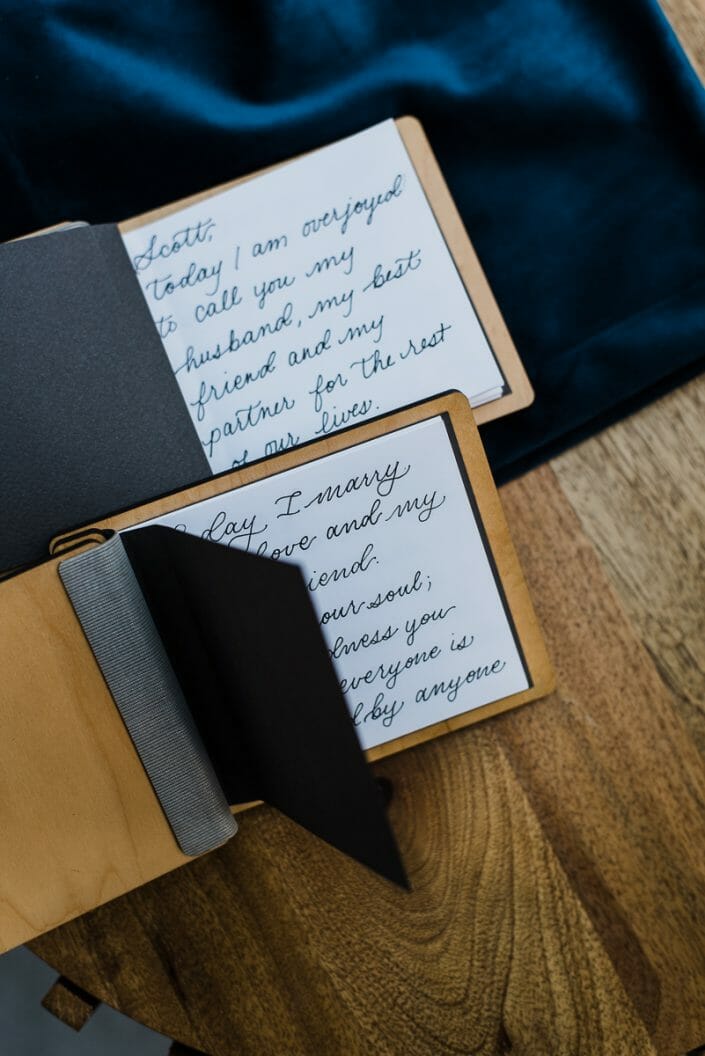 Scott,
Today I am overjoyed
to call you my
husband, my best
friend and my
partner for the rest
of our lives.
I marry
love and my
soul;
you
everyone is
by anyone